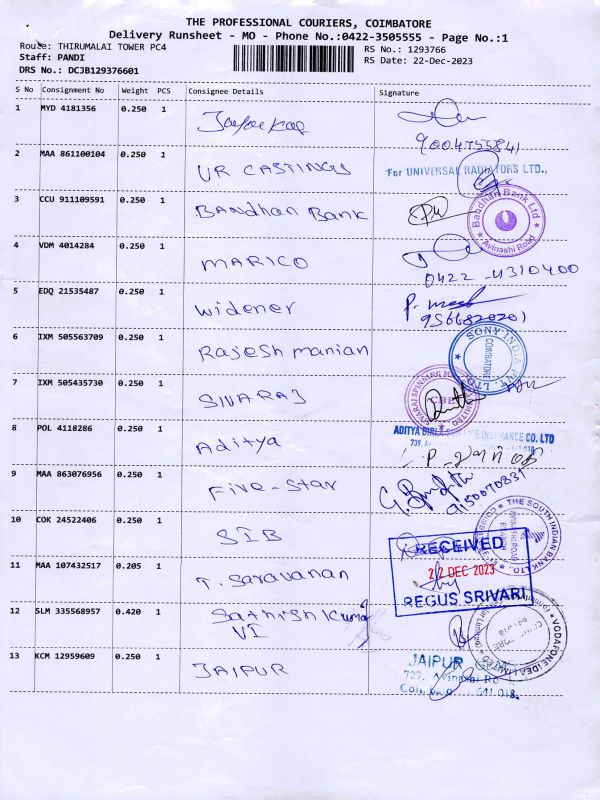 THE PROFESSIONAL COURIERS, COIMBATORE
Delivery Runsheet - MO - Phone No.:0422-3505555 - Page No.:1
Route: THIRUMALAI TOWER PC4
RS No.: 1293766
Staff: PANDI
RS Date: 22-Dec-2023
DRS No.: DCJB129376601
S No Consignment No Weight PCS Consignee Details Signature
1 MYD 4181356 0.250 1
9004755841
2 MAA 861100104 0.250 1 UR CASTINGS For UNIVERSAL RADIATORS LTD.,
3 CCU 911109591 0.250 1 BANDhan Bank Bandhan Bank Ltd Avinashi Road
4 VDM 4014284 0.250 1 MARICO
0422-4310400
5 EDQ 21535487 0.250 1 Widener P.
9566820201
6 IXM 505563709 0.250 1 Rajesh manian SONY INDIA PVT. LTD. COIMBATORE
7 IXM 505435730 0.250 1 SIVARAJ CBE
8 POL 4118286 0.250 1 Aditya ADITYA BIRLA INSURANCE CO, LTD
739,
9 MAA 863076956 0.250 1 Five-Star G.
9150070831
10 COK 24522406 0.250 1 SIB THE SOUTH INDIAN BANK LTD.
RECEIVED
11 MAA 107432517 0.205 1 T. Saravanan 22 DEC 2023
REGUS SRIVARI
12 SLM 335568957 0.420 1 Sathish Kumar
VI VODAFONE IDEA LIMITED
13 KCM 12959609 0.250 1 JAIPUR JAIPUR
729, Avinashi Ro
641 018.